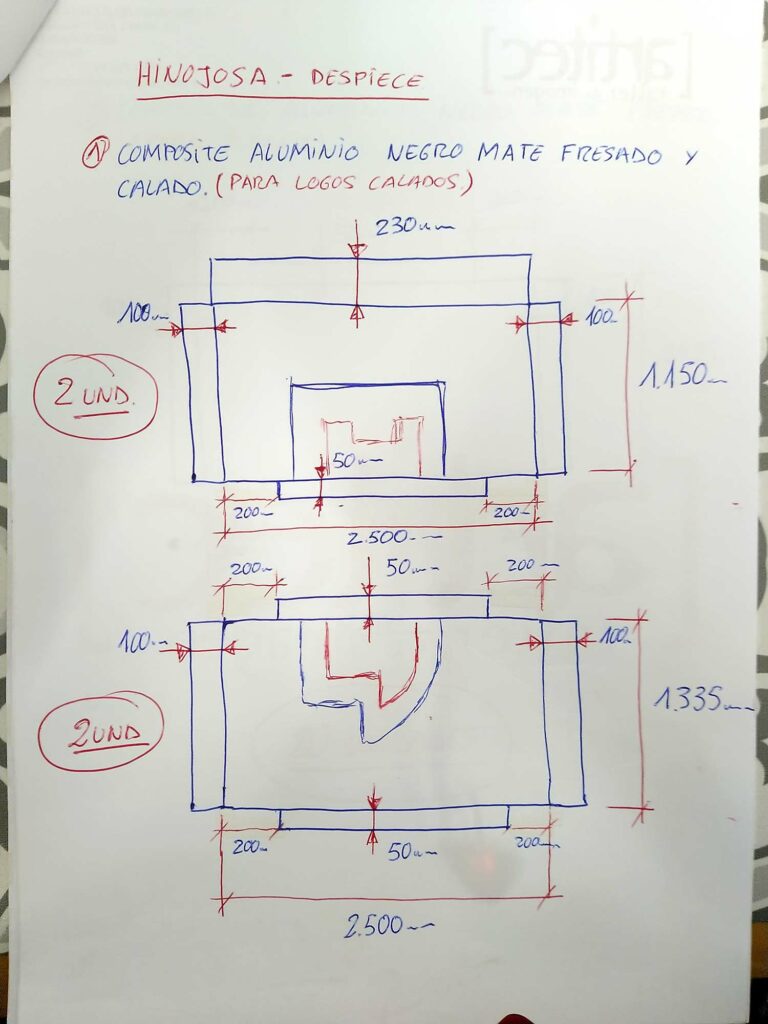 [artitec]
HINOJOSA.- DESPIECE
① COMPOSITE ALUMINIO NEGRO MATE FRESADO Y
CALADO. (PARA LOGOS CALADOS.)
230mm
100mm
100m
2 UND.
1.150m
50mm
200m
200m
2.500mm
200m
50mm
200m
100m
100m
1.335mm
2 UND
200m
50mm
200mm
2.500mm